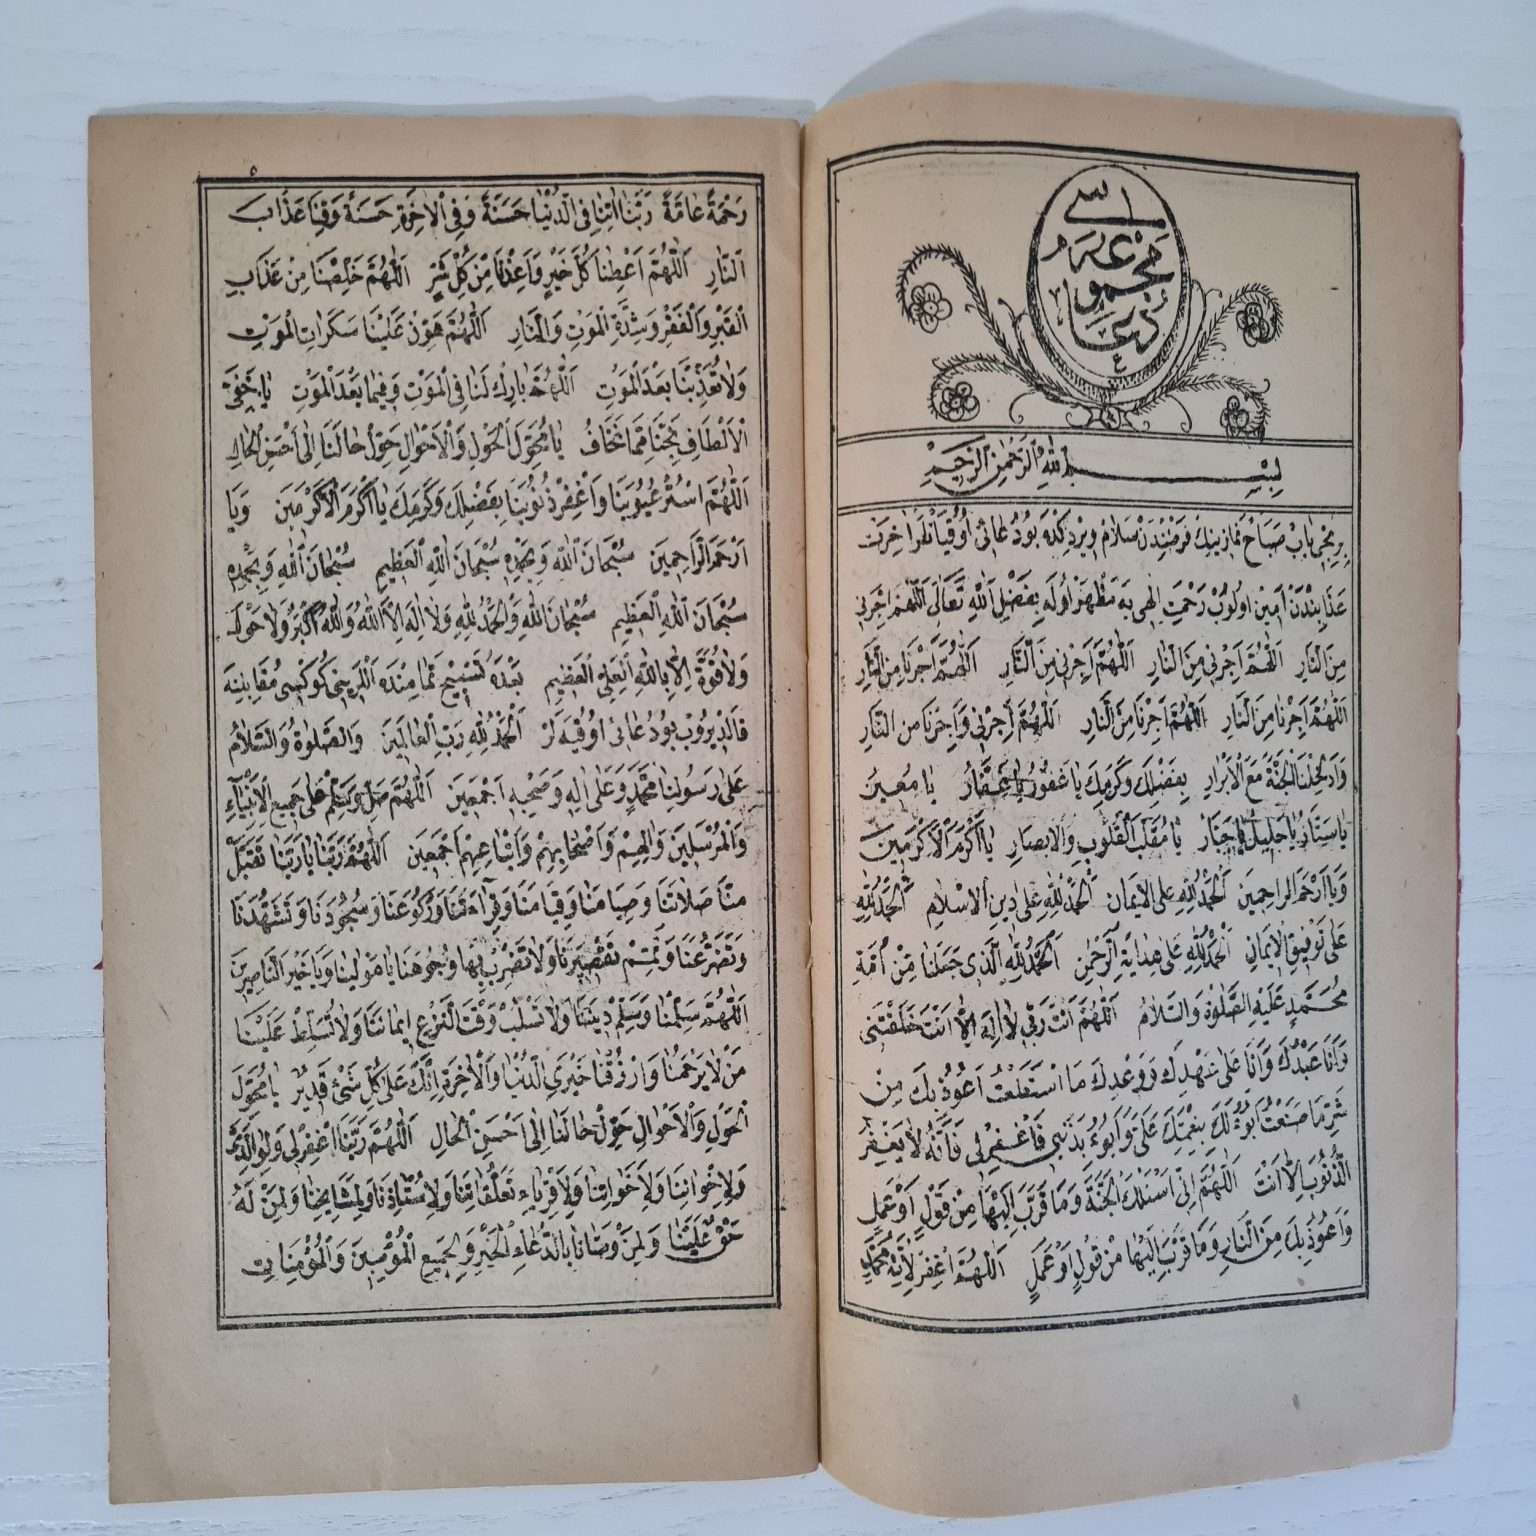 اسى
مجموعه
دعا
٤
بِسْــــــمِ اللهِ الرَّحْمٰنِ الرَّحِيمِ
بِرِنْجِى بَابْ صَبَاحْ نَمَازِينِكْ فَرْضِنْدَنْ سَلَامْ وِيرْدِكْدَه بُو دُعَائِى أُوقُيَانْلَرْ اٰخِرَتْ
عَذَابِنْدَنْ اَمِينْ اُولُوبْ رَحْمَتِ اِلٰهِى يَه مَظْهَرْ اُولَه بِفَضْلِ اللهِ تَعَالٰى اَللّٰهُمَّ اَجِرْنِى
مِنَ النَّارِ اَللّٰهُمَّ اَجِرْنِى مِنَ النَّارِ اَللّٰهُمَّ اَجِرْنِى مِنَ النَّارِ اَللّٰهُمَّ اَجِرْنَا مِنَ النَّارِ
اَللّٰهُمَّ اَجِرْنَا مِنَ النَّارِ اَللّٰهُمَّ اَجِرْنَا مِنَ النَّارِ اَللّٰهُمَّ اَجِرْنِى وَاَجِرْنَا مِنَ النَّارِ
وَاَدْخِلْنَا الْجَنَّةَ مَعَ الْاَبْرَارِ بِفَضْلِكَ وَكَرَمِكَ يَا غَفُورُ يَا غَفَّارُ يَا مُعِينُ
يَا سَتَّارُ يَا جَلِيلُ يَا جَبَّارُ يَا مُقَلِّبَ الْقُلُوبِ وَالْاَبْصَارِ يَا اَكْرَمَ الْاَكْرَمِينَ
وَيَا اَرْحَمَ الرَّاحِمِينَ اَلْحَمْدُ لِلّٰهِ عَلَى الْاِيمَانِ اَلْحَمْدُ لِلّٰهِ عَلٰى دِينِ الْاِسْلَامِ اَلْحَمْدُ لِلّٰهِ
عَلٰى تَوْفِيقِ الْاِيمَانِ اَلْحَمْدُ لِلّٰهِ عَلٰى هِدَايَةِ الرَّحْمٰنِ اَلْحَمْدُ لِلّٰهِ الَّذِى جَعَلَنَا مِنْ اُمَّةِ
مُحَمَّدٍ عَلَيْهِ الصَّلٰوةُ وَالسَّلَامُ اَللّٰهُمَّ اَنْتَ رَبِّى لَا اِلٰهَ اِلَّا اَنْتَ خَلَقْتَنِى
وَاَنَا عَبْدُكَ وَاَنَا عَلٰى عَهْدِكَ وَوَعْدِكَ مَا اسْتَطَعْتُ اَعُوذُ بِكَ مِنْ
شَرِّ مَا صَنَعْتُ اَبُوءُ لَكَ بِنِعْمَتِكَ عَلَىَّ وَاَبُوءُ بِذَنْبِى فَاغْفِرْ لِى فَاِنَّهُ لَا يَغْفِرُ
الذُّنُوبَ اِلَّا اَنْتَ اَللّٰهُمَّ اِنِّى اَسْئَلُكَ الْجَنَّةَ وَمَا قَرَّبَ اِلَيْهَا مِنْ قَوْلٍ اَوْ عَمَلٍ
وَاَعُوذُ بِكَ مِنَ النَّارِ وَمَا قَرَّبَ اِلَيْهَا مِنْ قَوْلٍ اَوْ عَمَلٍ اَللّٰهُمَّ اغْفِرْ لِاُمَّةِ مُحَمَّدٍ
٥
رَحْمَةً عَامَّةً رَبَّنَا اٰتِنَا فِى الدُّنْيَا حَسَنَةً وَفِى الْاٰخِرَةِ حَسَنَةً وَقِنَا عَذَابَ
النَّارِ اَللّٰهُمَّ اَعْطِنَا كُلَّ خَيْرٍ وَاَعِذْنَا مِنْ كُلِّ شَرٍّ اَللّٰهُمَّ خَلِّصْنَا مِنْ عَذَابِ
الْقَبْرِ وَالْفَقْرِ وَشِدَّةِ الْمَوْتِ وَالنَّارِ اَللّٰهُمَّ هَوِّنْ عَلَيْنَا سَكَرَاتِ الْمَوْتِ
وَلَا تُعَذِّبْنَا بَعْدَ الْمَوْتِ اَللّٰهُمَّ بَارِكْ لَنَا فِى الْمَوْتِ وَفِيمَا بَعْدَ الْمَوْتِ يَا خَفِىَّ
الْاَلْطَافِ نَجِّنَا مِمَّا نَخَافُ يَا مُحَوِّلَ الْحَوْلِ وَالْاَحْوَالِ حَوِّلْ حَالَنَا اِلٰى اَحْسَنِ الْحَالِ
اَللّٰهُمَّ اسْتُرْ عُيُوبَنَا وَاغْفِرْ ذُنُوبَنَا بِفَضْلِكَ وَكَرَمِكَ يَا اَكْرَمَ الْاَكْرَمِينَ وَيَا
اَرْحَمَ الرَّاحِمِينَ سُبْحَانَ اللهِ وَبِحَمْدِهِ سُبْحَانَ اللهِ الْعَظِيمِ سُبْحَانَ اللهِ وَبِحَمْدِهِ
سُبْحَانَ اللهِ الْعَظِيمِ سُبْحَانَ اللهِ وَالْحَمْدُ لِلّٰهِ وَلَا اِلٰهَ اِلَّا اللهُ وَاللهُ اَكْبَرُ وَلَا حَوْلَ
وَلَا قُوَّةَ اِلَّا بِاللهِ الْعَلِىِّ الْعَظِيمِ بَعْدَه تَسْبِيحْ تَمَامِنْدَه اَلْلَرِينِى كُوكْسِى مُقَابِلِينَه
قَالْدِيرُوبْ بُو دُعَائِى اُوقُيَه لَرْ اَلْحَمْدُ لِلّٰهِ رَبِّ الْعَالَمِينَ وَالصَّلٰوةُ وَالسَّلَامُ
عَلٰى رَسُولِنَا مُحَمَّدٍ وَعَلٰى اٰلِهِ وَصَحْبِهِ اَجْمَعِينَ اَللّٰهُمَّ صَلِّ وَسَلِّمْ عَلٰى جَمِيعِ الْاَنْبِيَاءِ
وَالْمُرْسَلِينَ وَاٰلِهِمْ وَاَصْحَابِهِمْ وَاَتْبَاعِهِمْ اَجْمَعِينَ اَللّٰهُمَّ رَبَّنَا يَا رَبَّنَا تَقَبَّلْ
مِنَّا صَلَاتَنَا وَصِيَامَنَا وَقِيَامَنَا وَقِرَاءَتَنَا وَرُكُوعَنَا وَسُجُودَنَا وَتَشَهُّدَنَا
وَتَضَرُّعَنَا وَتَمِّمْ تَقْصِيرَنَا وَلَا تَضْرِبْ بِهَا وُجُوهَنَا يَا مَوْلٰينَا وَيَا خَيْرَ النَّاصِرِينَ
اَللّٰهُمَّ سَلِّمْنَا وَسَلِّمْ دِينَنَا وَلَا تَسْلُبْ وَقْتَ النَّزْعِ اِيمَانَنَا وَلَا تُسَلِّطْ عَلَيْنَا
مَنْ لَا يَرْحَمُنَا وَارْزُقْنَا خَيْرَىِ الدُّنْيَا وَالْاٰخِرَةِ اِنَّكَ عَلٰى كُلِّ شَىْءٍ قَدِيرٌ يَا مُحَوِّلَ
الْحَوْلِ وَالْاَحْوَالِ حَوِّلْ حَالَنَا اِلٰى اَحْسَنِ الْحَالِ اَللّٰهُمَّ رَبَّنَا اغْفِرْ لِى وَلِوَالِدَىَّ
وَلِاِخْوَانِنَا وَلِاَخَوَاتِنَا وَلِاَقْرِبَاءِ تَعَلُّقَاتِنَا وَلِاُسْتَاذِنَا وَلِمَشَايِخِنَا وَلِمَنْ لَهُ
حَقٌّ عَلَيْنَا وَلِمَنْ وَصَّانَا بِالدُّعَاءِ الْخَيْرِ وَلِجَمِيعِ الْمُؤْمِنِينَ وَالْمُؤْمِنَاتِ